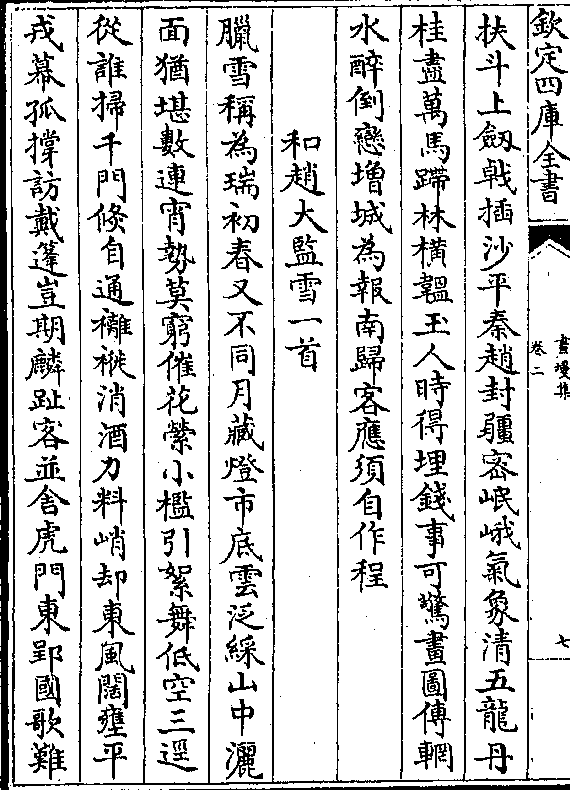 欽定四庫全書
畫墁集
卷二
七
扶斗上劔㦸插沙平秦趙封疆密岷峨氣象清五龍丹
桂盡萬馬蹛林橫韞玉人時得埋錢事可驚畫圖傳輞
水醉倒戀增城為報南歸客應須自作程
和趙大監雪一首
臘雪稱為瑞初春又不同月藏燈市底雲泛綵山中灑
面猶堪數連宵勢莫窮催花縈小檻引絮舞低空三逕
從誰掃千門倐自通襳褷消酒力料峭却東風闊壅平
戎幕孤撐訪戴蓬豈期麟趾客並舍虎門東郢國歌難